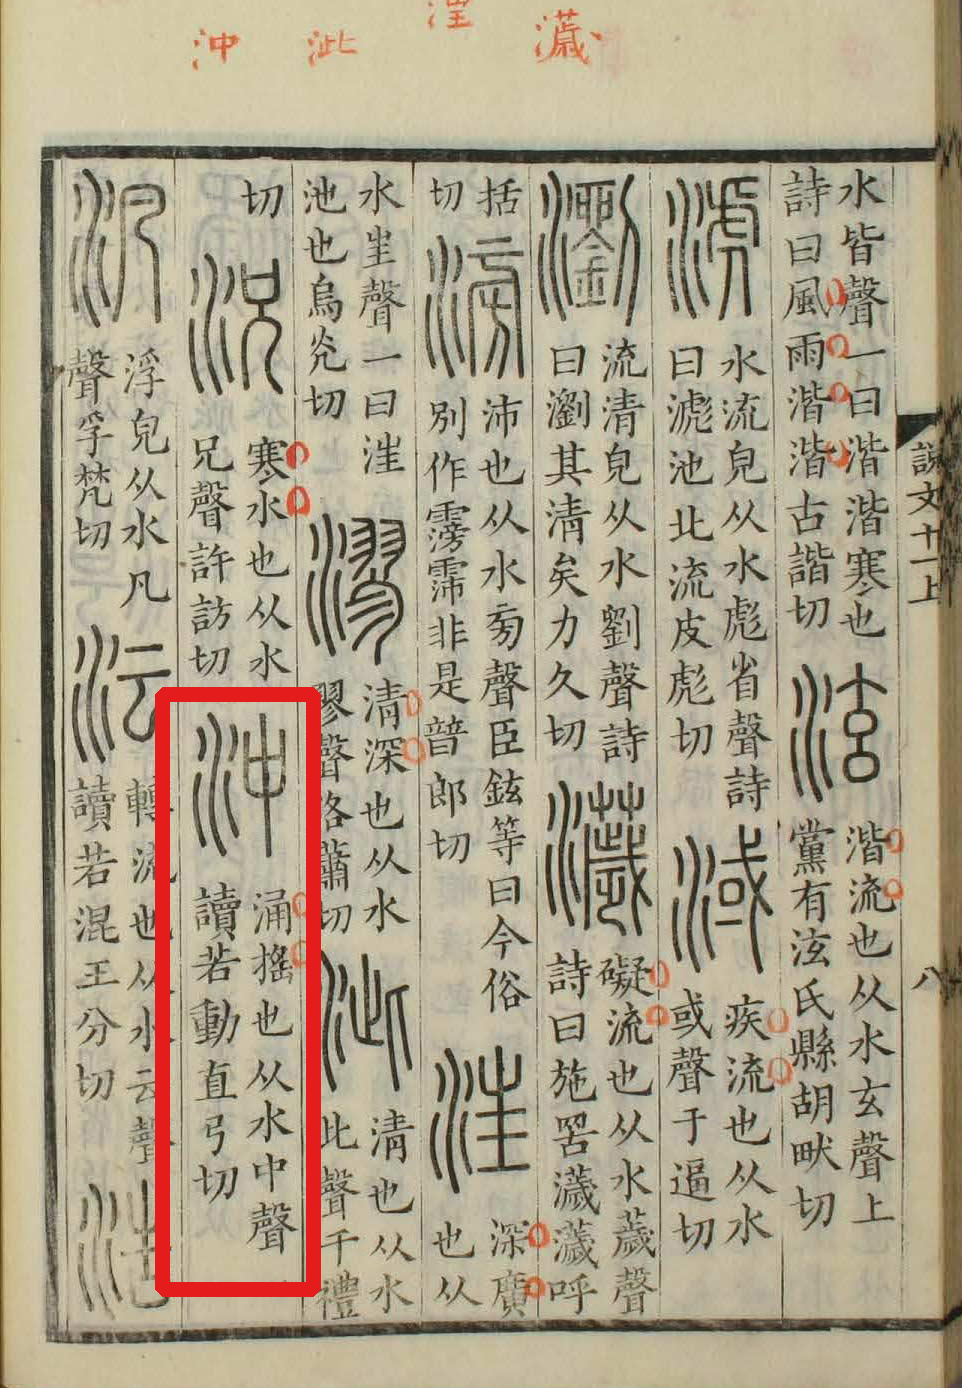 濊
泚
沖
說文十一上
八
水皆聲一曰湝湝寒也
詩曰風雨湝湝古諧切
泫
湝流也从水玄聲上
黨有泫氏縣胡畎切
滮
水流皃从水彪省聲詩
曰滮池北流皮彪切
淢
疾流也从水
或聲于逼切
瀏
流清皃从水劉聲詩
曰瀏其清矣力久切
濊
礙流也从水薉聲
詩曰施罟濊濊呼
括
切
滂
沛也从水㫄聲臣鉉等曰今俗
別作霶霈非是普郎切
汪
深廣
也从
水㞷聲一曰汪
池也烏光切
漻
清深也从水
翏聲洛蕭切
泚
清也从水
此聲千禮
切
況
寒水也从水
兄聲許訪切
沖
涌搖也从水中聲
讀若動直弓切
汎
浮皃从水凡
聲孚梵切
沄
轉流也从水云聲
讀若混王分切
浩